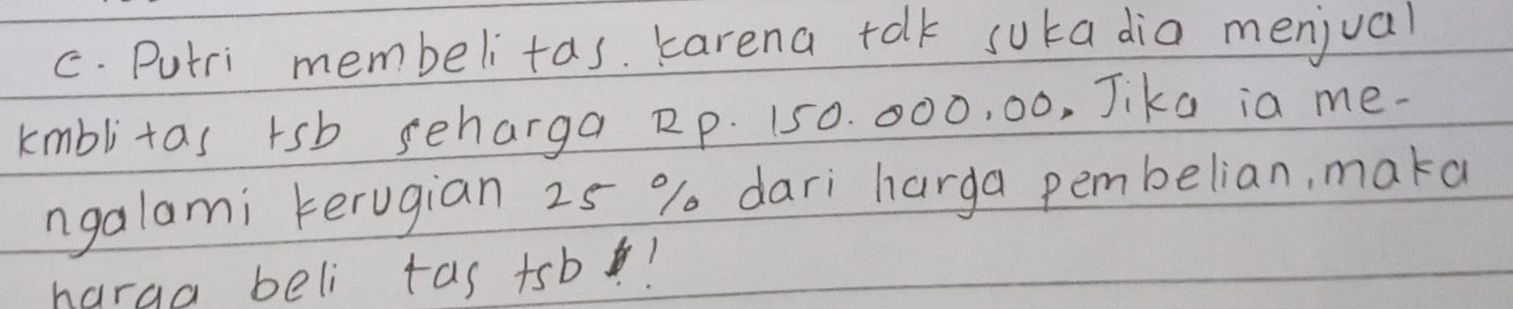 c. Putri membeli tas. karena tdk suka dia menjual
kmbli tas tsb seharga Rp. 150.000,00. Jika ia me-
ngalami kerugian 25 % dari harga pembelian, maka
harga beli tas tsb !